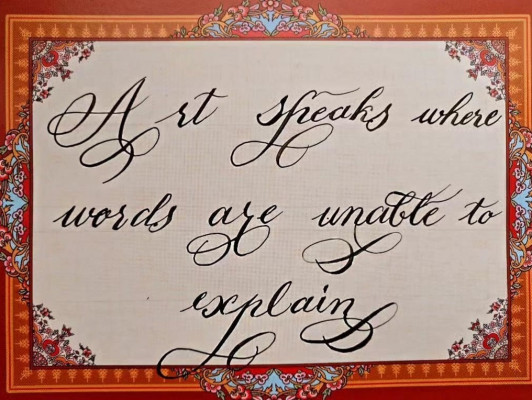 Art speaks where
words are unable to
explain